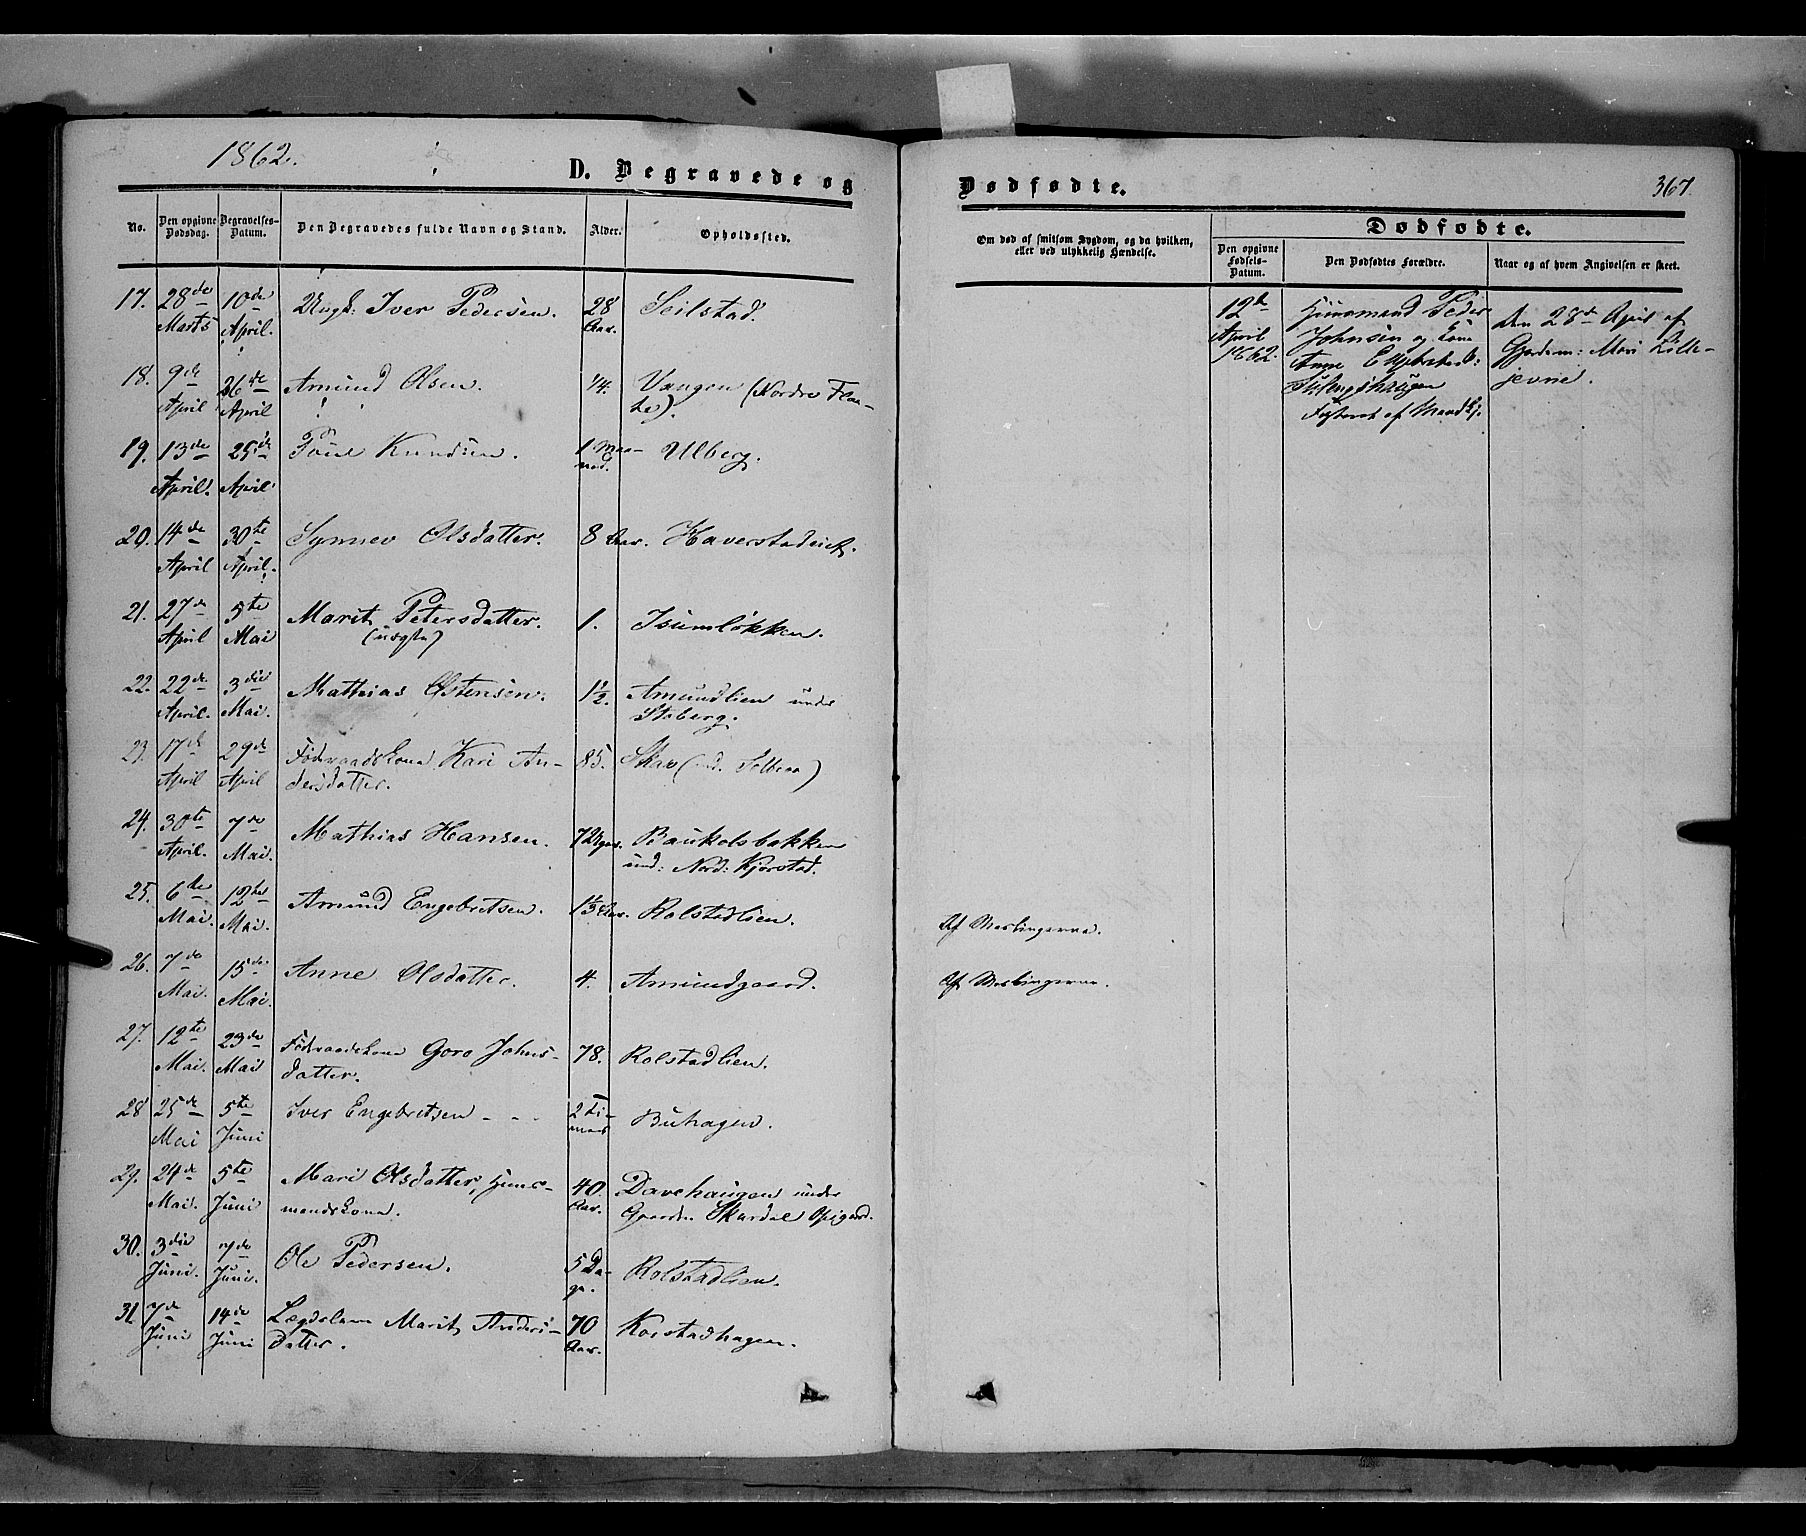 1862.
D. Begravede og
No.
Den opgivne
Dødsdag.
Begravelses-
Datum.
Den Begravedes fulde Navn og Stand.
Alder.
Opholdssted.
17. 28de Marts 10de April. Ungk: Iver Pedersen. 28 Aar. Seilstad.
18. 9de April 26de April Amund Olsen. 1/4. Vangen (Nordre Flaa-
te).
19. 13de April. 25de April Poul Knudsen. 1 Maa-
ned. Ulberg.
20. 14de April 30te April. Synnev Olsdatter. 8 Aar. Haverstadeiet.
21. 27de April 5te Mai Marit Petersdatter. 1. Isumløkken.
(uægte)
22. 22de April. 3die Mai. Mathias Østensen. 1 1/2. Amundlien under
Stoberg.
23. 17de April 29de April Føderaadskone Kari An-
dersdatter. 85. Skar (und. Solbraa)
24. 30te April. 7de Mai. Mathias Hansen. Baukolsbakken
und: Nord: Kjørstad.
25. 6te Mai. 12te Mai. Amund Engebretsen. Aar. Rolstadlien. Af Meslingerne.
26. 7de Mai. 15de Mai. Anne Olsdatter. 4. Amundgaard. Af Meslingerne.
27. 12te Mai. 23de Mai Føderaadskone Goro Johns-
datter. 78. Rolstadlien.
28 25de Mai 5te Juni Iver Engebretsen - - - 2 Ti-
mer Buhagen.
29. 24de Mai. 5te Juni Mari Olsdatter, Huus-
mandskone. 40 Aar. Davehaugen under
Gaarden Skurdal Opigard.
30. 3die Juni. 7de Juni. Ole Pedersen. 5 Da-
ge. Rolstadlien.
31. 7de Juni 14de Juni Lægdslem Marit Anders-
datter. 70 Aar. Korstadhagen.
Dødfødte.
367.
Om død af smitsom Sygdom, og da hvilken,
eller ved ulykkelig Hændelse.
Dødfødte.
Den opgivne
Fødsels-
Datum.
Den Dødfødtes Forældre.
Naar og af hvem Angivelsen er skeet.
12te
April
1862.
Huusmand Peder
Johnsen og Kone
Anne Engebretsd:
Fosteret af Mandkj.
Den 28de April af
Gjordem: Mari Lille-
jevne.